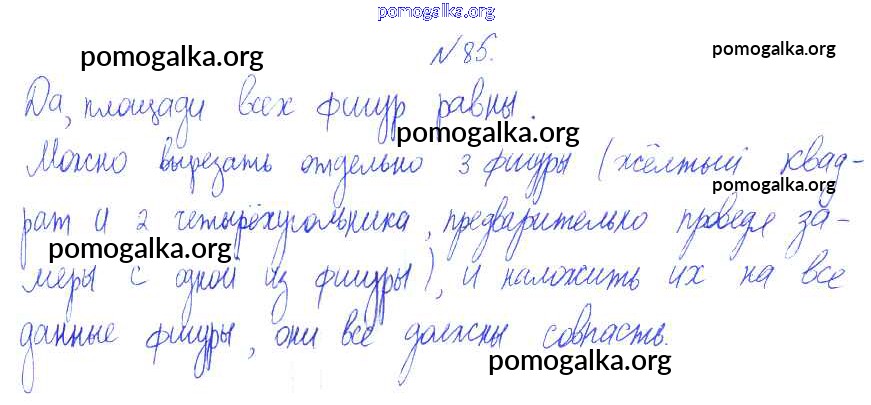 pomogalka.org
№ 85.
pomogalka.org
pomogalka.org
Да, площади всех фигур равны.
pomogalka.org
Можно вырезать отдельно 3 фигуры (жёлтый квад-
pomogalka.org
рат и 2 четырёхугольника, предварительно проведя за-
pomogalka.org
меры с одной из фигуры), и наложить их на все
данные фигуры, они все должны совпасть.
pomogalka.org